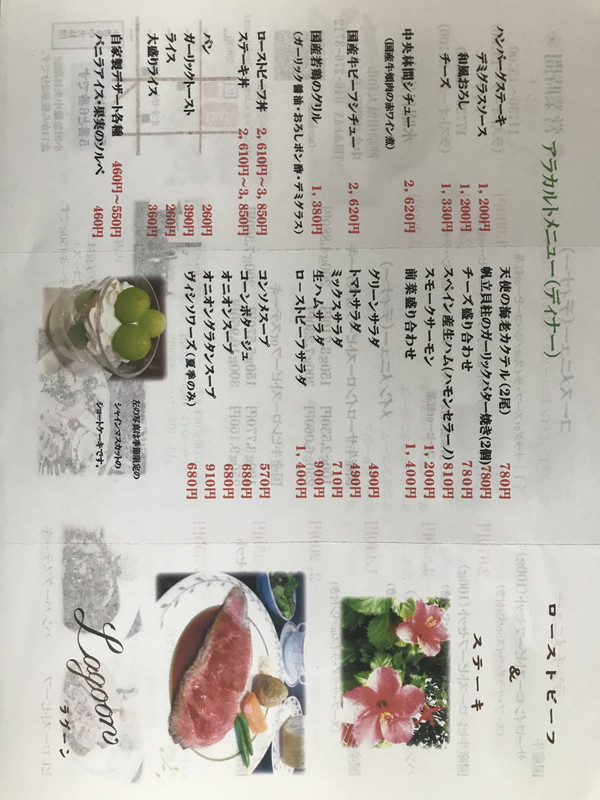 アラカルトメニュー(ディナー)
ハンバーグステーキ
デミグラスソース 1,200円
和風おろし 1,200円
チーズ 1,330円
中央林間シチュー 2,620円
(国産牛頬肉の赤ワイン煮)
国産牛ビーフシチュー 2,620円
国産若鶏のグリル 1,380円
(ガーリック醤油・おろしポン酢・デミグラス)
ローストビーフ丼 2,610円～3,850円
ステーキ丼 2,610円～3,850円
パン 260円
ガーリックトースト 390円
ライス 260円
大盛りライス 360円
自家製デザート各種 460円～550円
バニラアイス・果実のソルベ 460円
天使の海老カクテル(2尾) 780円
帆立貝柱のガーリックバター焼き(2個) 780円
チーズ盛り合わせ 780円
スペイン産生ハム(ハモンセラーノ) 810円
スモークサーモン 1,200円
前菜盛り合わせ 1,400円
グリーンサラダ 490円
トマトサラダ 490円
ミックスサラダ 710円
生ハムサラダ 900円
ローストビーフサラダ 1,400円
コンソメスープ 570円
コーンポタージュ 680円
オニオンスープ 680円
オニオングラタンスープ 910円
ヴィシソワーズ(夏季のみ) 680円
左の写真は季節限定の
シャインマスカットの
ショートケーキです。
ローストビーフ
&
ステーキ
Lagoon
ラグーン